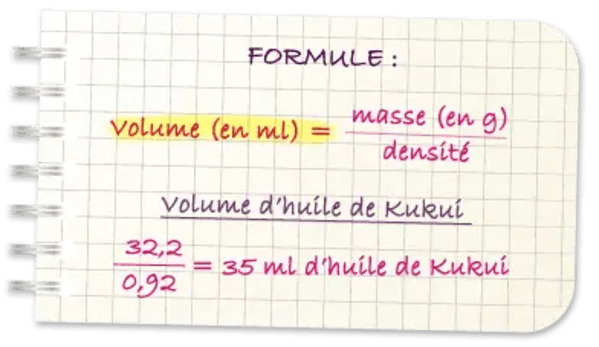 FORMULE :
Volume (en ml) = masse (en g)
densité
Volume d'huile de Kukui
32,2
0,92 = 35 ml d'huile de Kukui